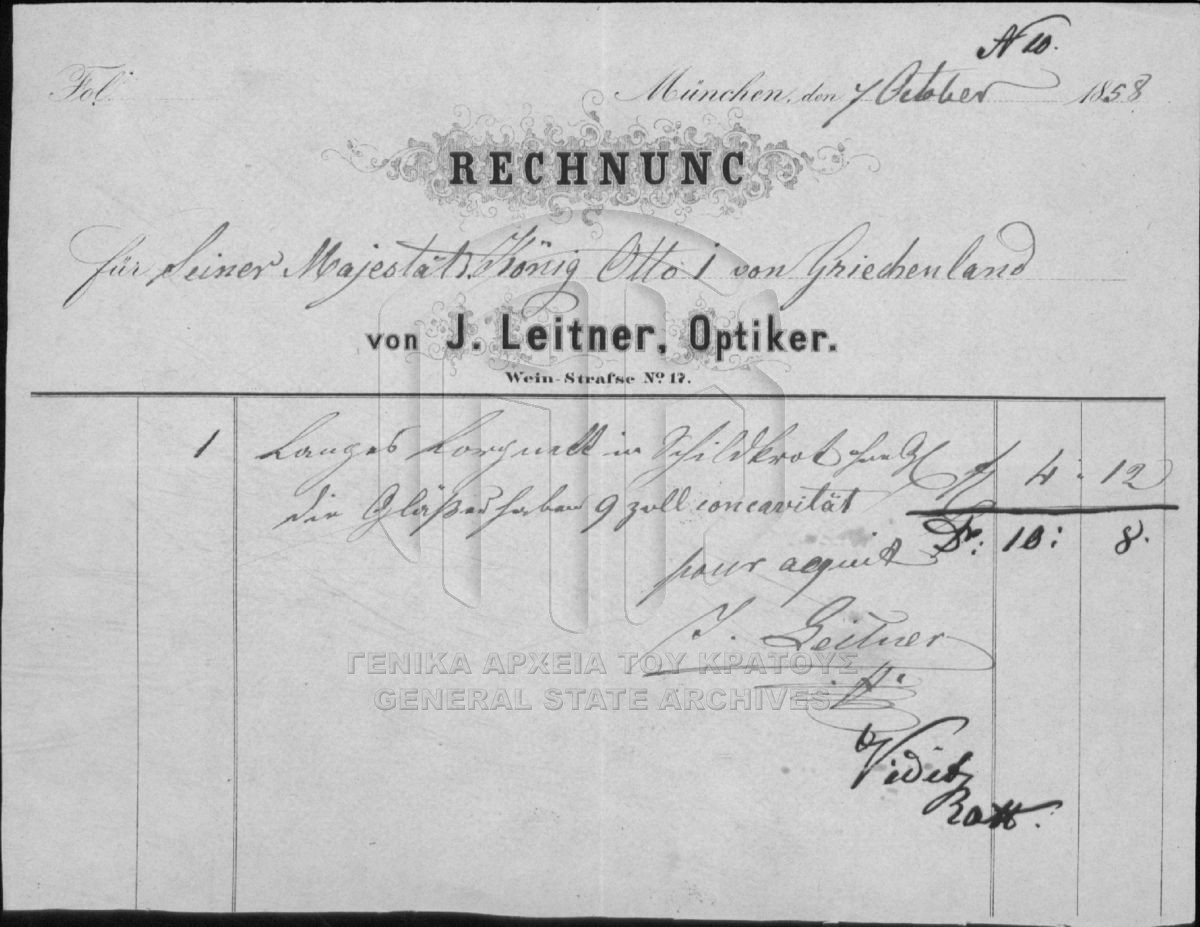 N 10.
Fol. München, den 7 October 1858
RECHNUNG
für Seiner Majestät König Otto I von Griechenland
von J. Leitner, Optiker.
Wein-Strafse No. 17.
1 Langes Lorgnett in Schildkrot f 4 " 12
die Gläßer haben 9 zoll concavität
Dr: 10: 8.
pour acquit
J. Leitner
ΓΕΝΙΚΑ ΑΡΧΕΙΑ ΤΟΥ ΚΡΑΤΟΥΣ
GENERAL STATE ARCHIVES
Vidit